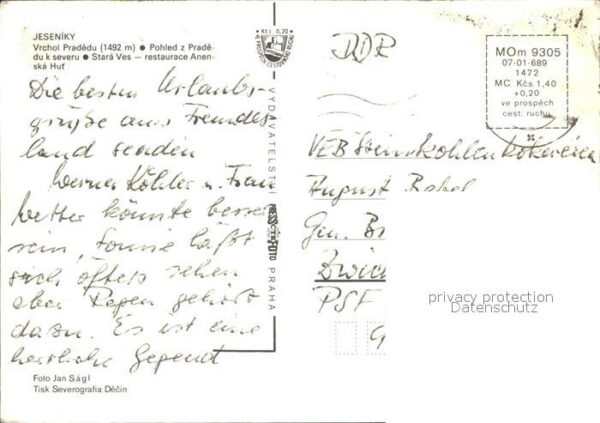 JESENÍKY
Vrchol Pradědu (1492 m) ● Pohled z Pradě-
du k severu ● Stará Ves — restaurace Anen-
ská Huť
Die besten Urlaubs-
grüße aus Freundes
land senden
Werner Köhler u. Frau
Wetter könnte besser
sein, Sonne läßt
sich öfters sehen
aber Regen gehört
dazu. Es ist eine
herrliche Gegend
Foto Jan Ságl
Tisk Severografia Děčín
Kčs 0,20
VE PROSPĚCH CESTOVNÍHO RUCHU
VYDAVATELSTVÍ
PRESSFOTO
PRAHA
DDR
MOm 9305
07-01-689
1472
MC Kčs 1,40
+0,20
ve prospěch
cest. ruchu
VEB Steinkohlenkokereien
August Bebel
Gen. Br
Zwic
PSF
9
privacy protection
Datenschutz